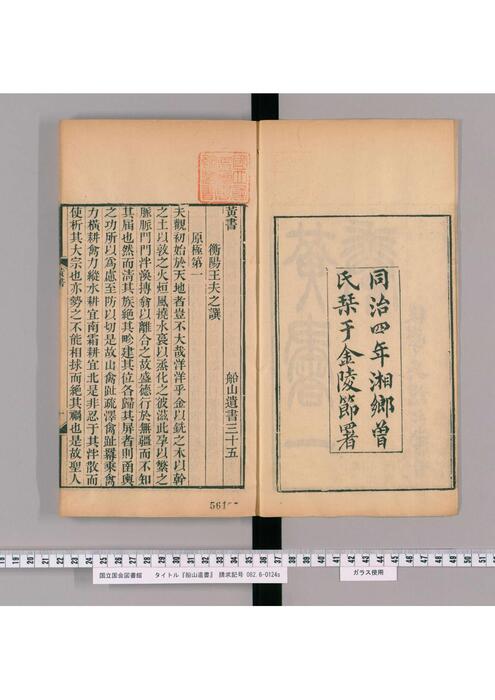 同治四年湘鄉曾
氏栞于金陵節署
黃書 船山遺書三十五
衡陽王夫之譔
原極第一
夫觀初始於天地者豈不大哉洋洋乎金以銑之木以幹
之土以敦之火烜風撓水裛以烝化之彼滋此孕以繁之
脈脈門門泮渙摶翕以離合之故盛德行於無疆而不知
其屆也然而清其族絕其畛建其位各歸其屏者則函輿
之功所以爲慮至防以切是故山禽趾疏澤禽趾羃乘禽
力橫耕禽力縱水耕宜南霜耕宜北是非忍于其泮散而
使析其大宗也亦勢之不能相捄而絕其禍也是故聖人
黃書
561
国立国会図書館 タイトル『船山遺書』 請求記号 082.6-0124s
ガラス使用